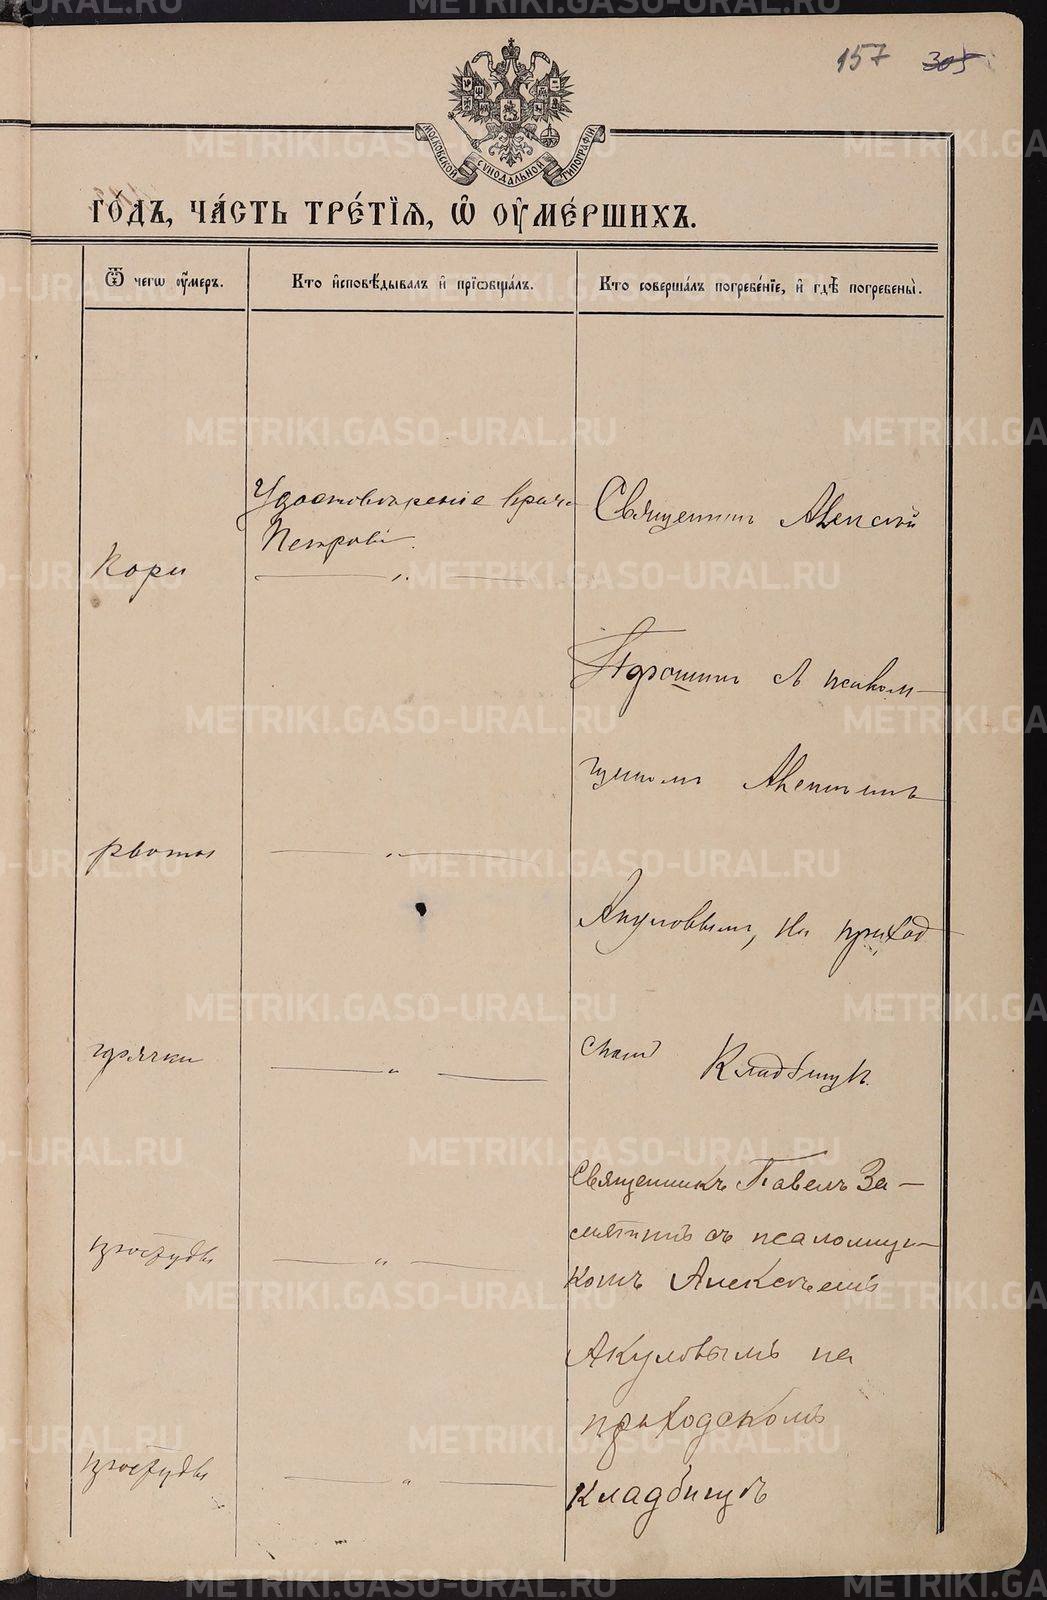 157 305
МОСКОВСКОЙ СѴНОДАЛЬНОЙ ТИПОГРАФІИ
ГО́ДЪ, ЧА́СТЬ ТРЕ́ТІѦ, Ѡ҆ ОУ҆МЕ́РШИХЪ.
Ѿ чегѡ ᲂу҆́меръ.
Кто и҆сповѣ́дывалъ и҆ прїѡбща́лъ.
Кто соверша́лъ погребе́нїе, и҆ гдѣ̀ погребены̀.
Удостовѣреніе врача
Петрова
Кори
Священникъ Алексѣй
съ псалом-
щикомъ Алексѣемъ
рвоты
Акуловымъ, на приход
скомъ Кладбищѣ.
горячки
Священникъ Павелъ За-
мятинъ съ псаломщи-
комъ Алексѣемъ
простуды
Акуловымъ на
приходскомъ
кладбищѣ
простуды
METRIKI.GASO-URAL.RU